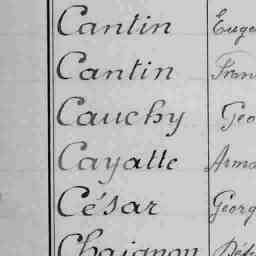 Cantin Euge
Cantin Fran
Cauchy Geo
Cayatte Arma
César Georg
Chaignon Dés